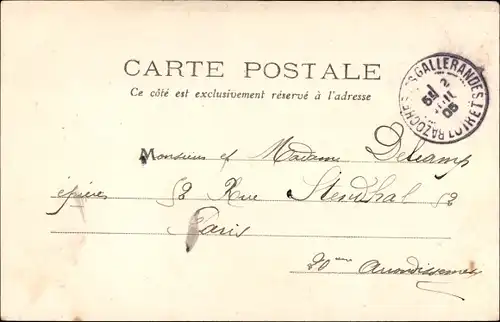 CARTE POSTALE
Ce côté est exclusivement réservé à l'adresse
BAZOCHES-LES-GALLERANDES LOIRET
2
05
Monsieur et Madame Delcamp
épiciers 52 Rue Stendhal 52
Paris
20ème Arrondissement